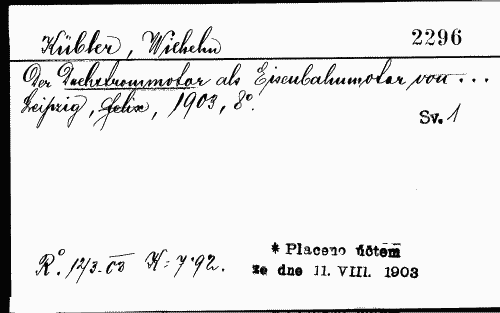 Kübler, Wilhelm 2296
Der Drehstrommotor als Eisenbahnmotor von ...
Leipzig, Felix, 1903, 8°.
Sv. 1
* Placeno účtem
R°. 12/3.– K = 7·92. ze dne 11. VIII. 1903